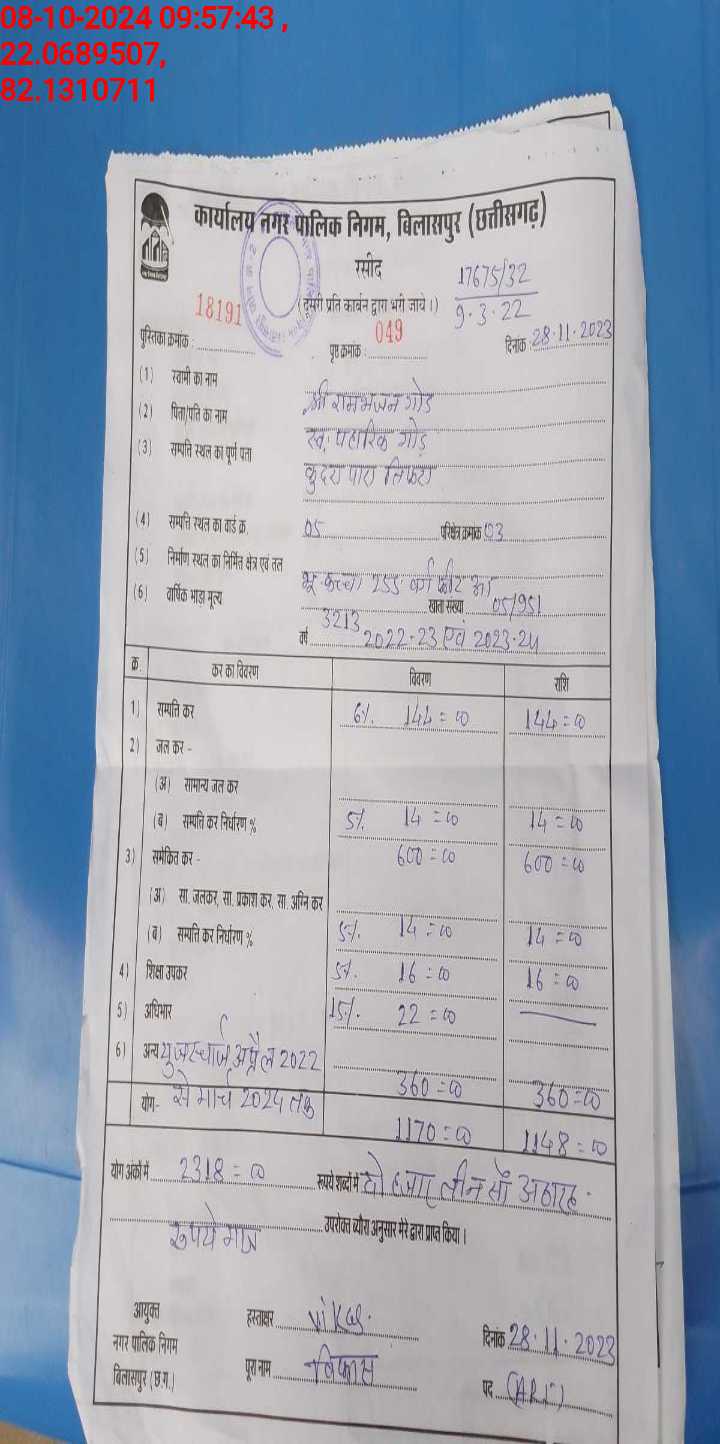 08-10-2024 09:57:43 ,
22.0689507,
82.1310711
कार्यालय नगर पालिक निगम, बिलासपुर (छत्तीसगढ़)
रसीद
17675/32
(दूसरी प्रति कार्बन द्वारा भरी जाये।)
9.3.22
पुस्तिका क्रमांक : 18191
पृष्ठ क्रमांक : 049
दिनांक : 28.11.2023
(1) स्वामी का नाम श्री रामभजन गोड
(2) पिता/पति का नाम स्व. पहारिक गोड
(3) सम्पत्ति स्थल का पूर्ण पता कुदरा पारा तिफरा
(4) सम्पत्ति स्थल का वार्ड क्र. 05 परिक्षेत्र क्रमांक 03
(5) निर्माण स्थल का निर्मित क्षेत्र एवं तल भू.कच्चा 255 वर्ग फीट
(6) वार्षिक भाड़ा मूल्य 3213 खाता संख्या 05/951
वर्ष 2022-23 एवं 2023-24
क्र. कर का विवरण विवरण राशि
1) सम्पत्ति कर 6%. 144=00 144=00
2) जल कर -
(अ) सामान्य जल कर
(ब) सम्पत्ति कर निर्धारण % 5%. 14=00 14=00
3) समेकित कर - 600=00 600=00
(अ) सा. जलकर, सा. प्रकाश कर, सा. अग्नि कर
(ब) सम्पत्ति कर निर्धारण % 5%. 14=00 14=00
4) शिक्षा उपकर 5%. 16=00 16=00
5) अधिभार 15%. 22=00 —
6) अन्य युजरचार्ज अप्रैल 2022
से मार्च 2024 तक 360=00 360=00
योग- 1170=00 1148=00
योग अंकों में 2318=00 रूपये शब्दों में दो हजार तीन सौ अठारह
रुपये मात्र उपरोक्त ब्यौरा अनुसार मेरे द्वारा प्राप्त किया।
आयुक्त
नगर पालिक निगम
बिलासपुर (छ.ग.)
हस्ताक्षर Vikas.
दिनांक 28.11.2023
पूरा नाम विकास
पद (ARI)